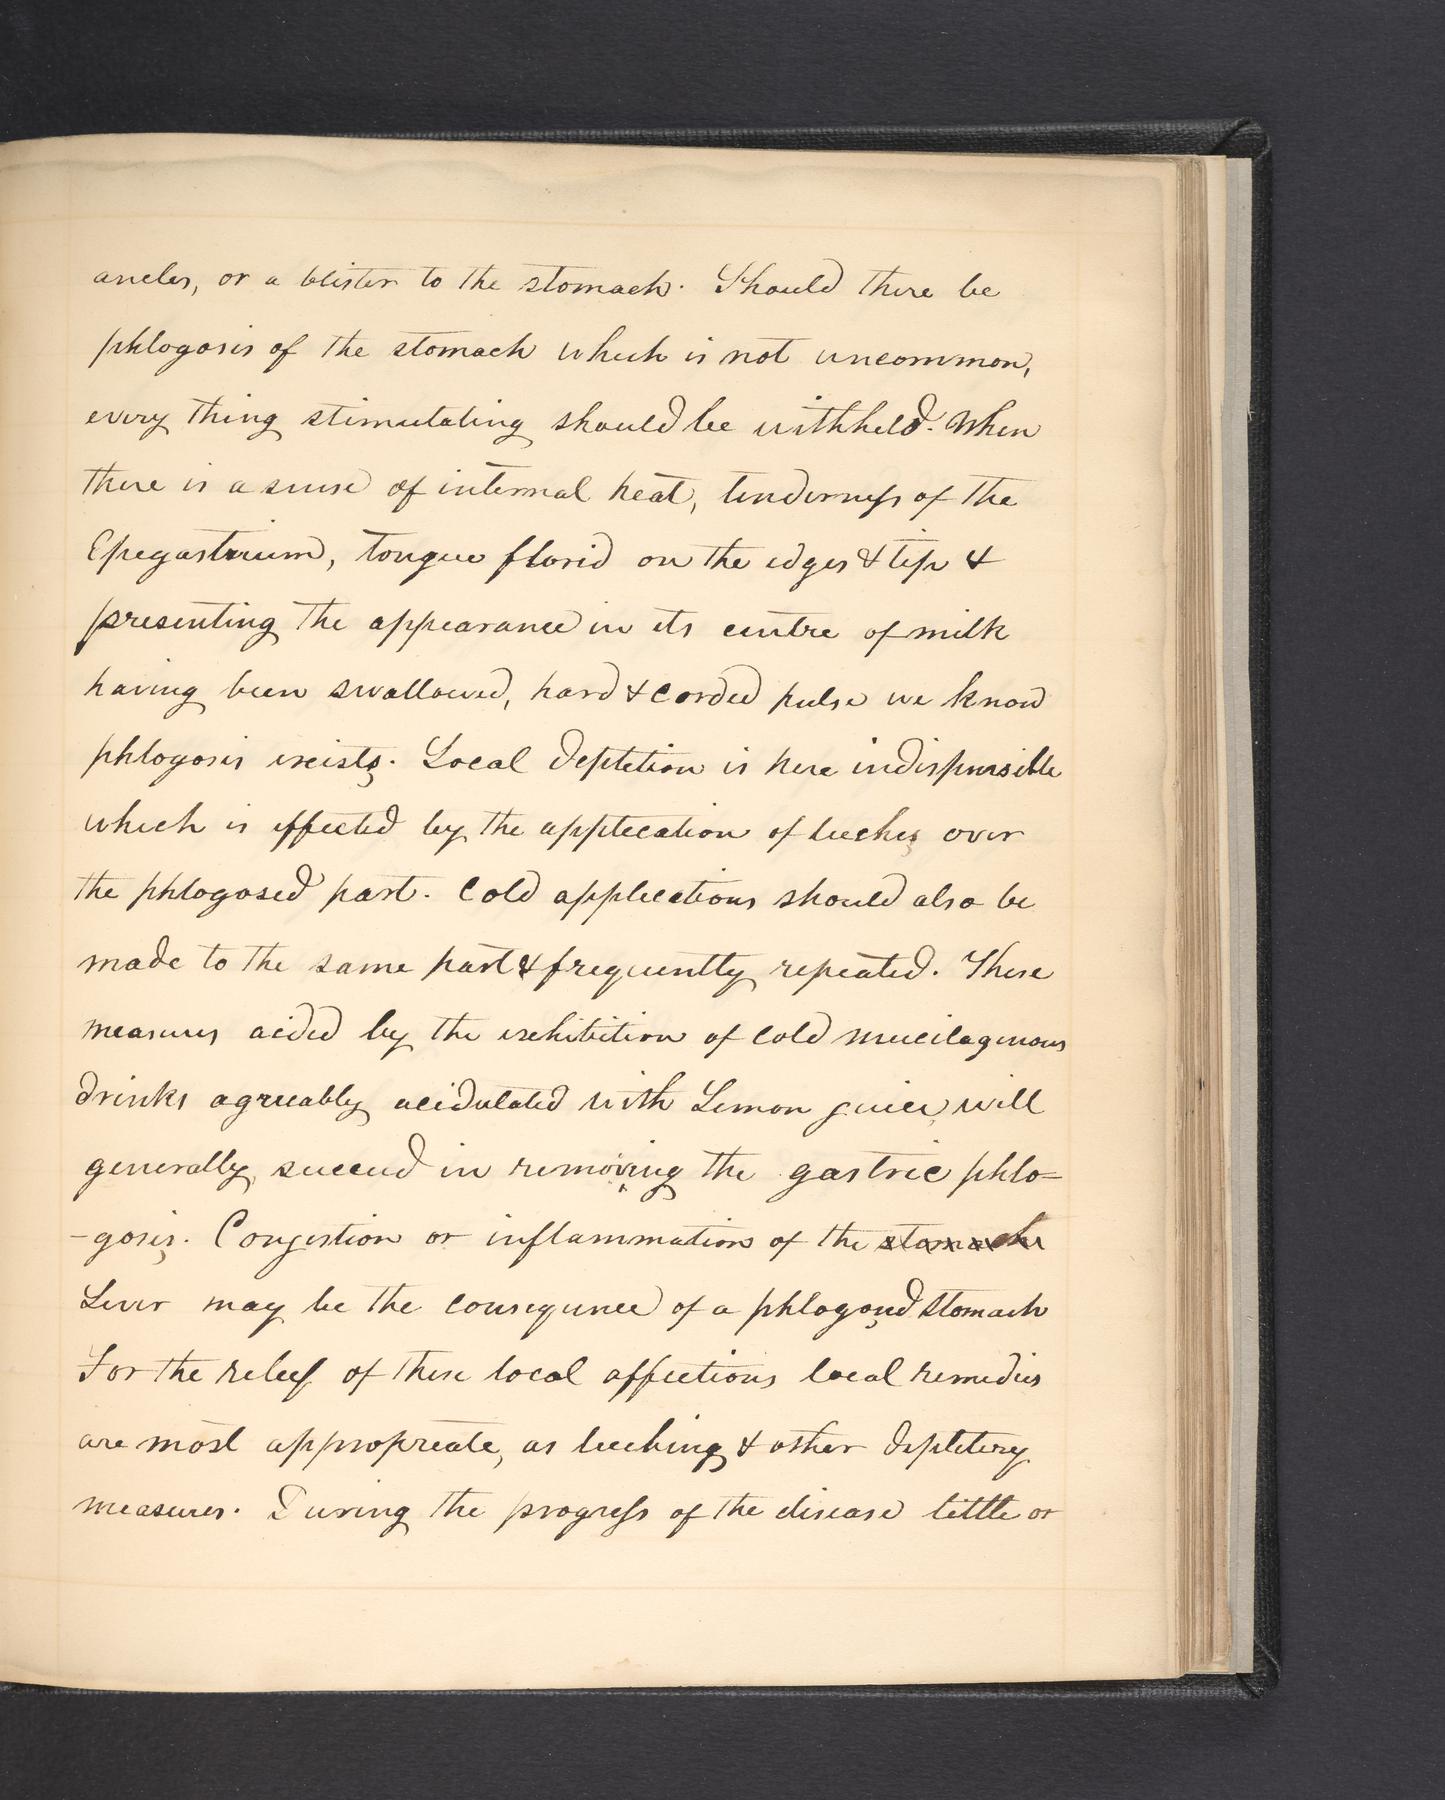 ancles, or a blister to the stomach. Should there be
phlogosis of the stomach which is not uncommon,
every thing stimulating should be withheld. When
there is a sense of internal heat, tenderness of the
Epegastrium, tongue florid on the edges & tip &
presenting the appearance in its centre of milk
having been swallowed, hard & corded pulse we know
phlogosis exists. Local depletion is here indispensible
which is effected by the application of leeches over
the phlogosed part. Cold applications should also be
made to the same part & frequently repeated. These
measures aided by the exhibition of cold mucilaginous
drinks agreeably acidulated with Lemon juice, will
generally, succeed in removing the gastric phlo-
-gosis. Congestion or inflammation of the stomach
Liver may be the consequence of a phlogosed stomach
For the relief of these local affections local remedies
are most appropreate, as leeching & other depletery
measures. During the progress of the disease little or